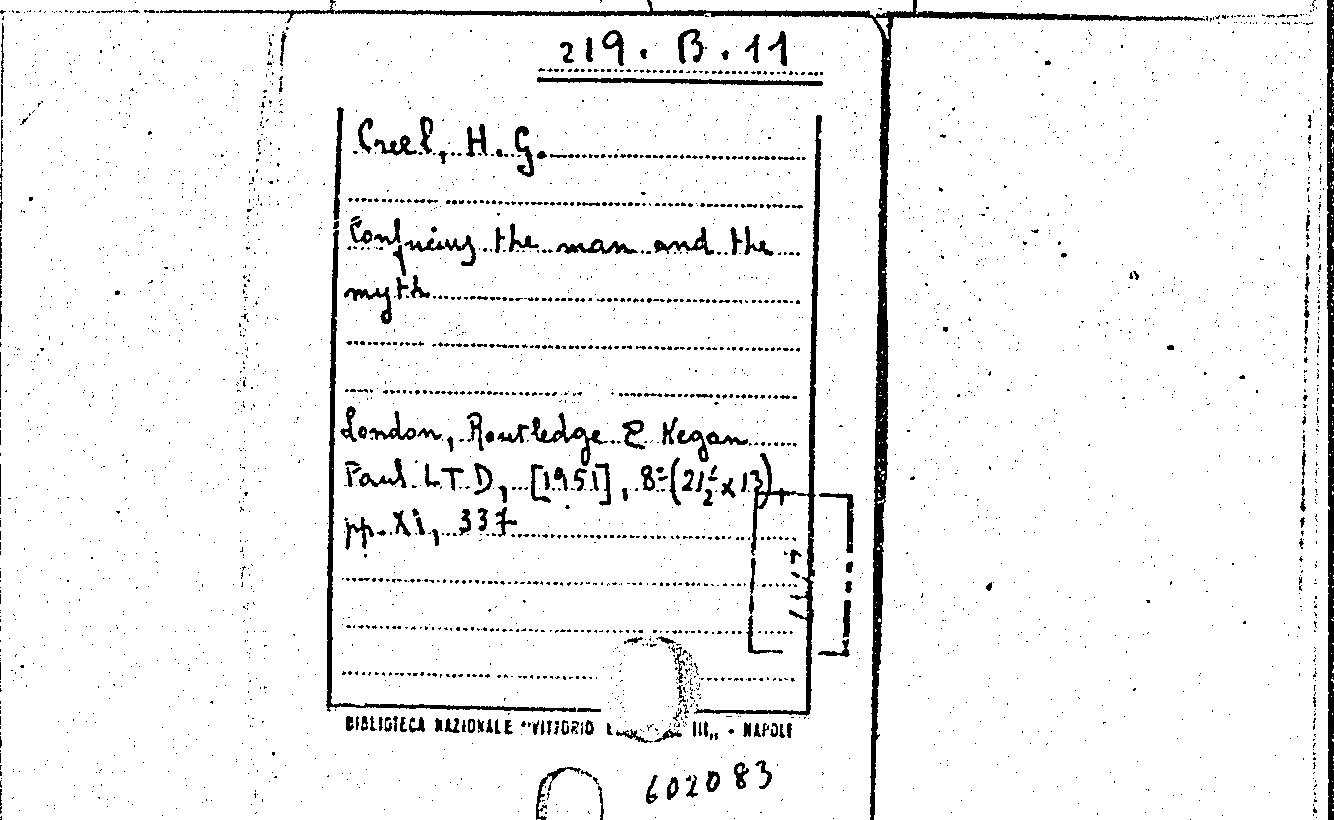 219. B. 11
Creel, H. G.
Confucius the man and the
myth
London, Routledge & Kegan
Paul L.T.D., [1951], 8° (21½ x 13),
pp. XI, 337
BIBLIOTECA NAZIONALE "VITTORIO III„ - NAPOLI
602083